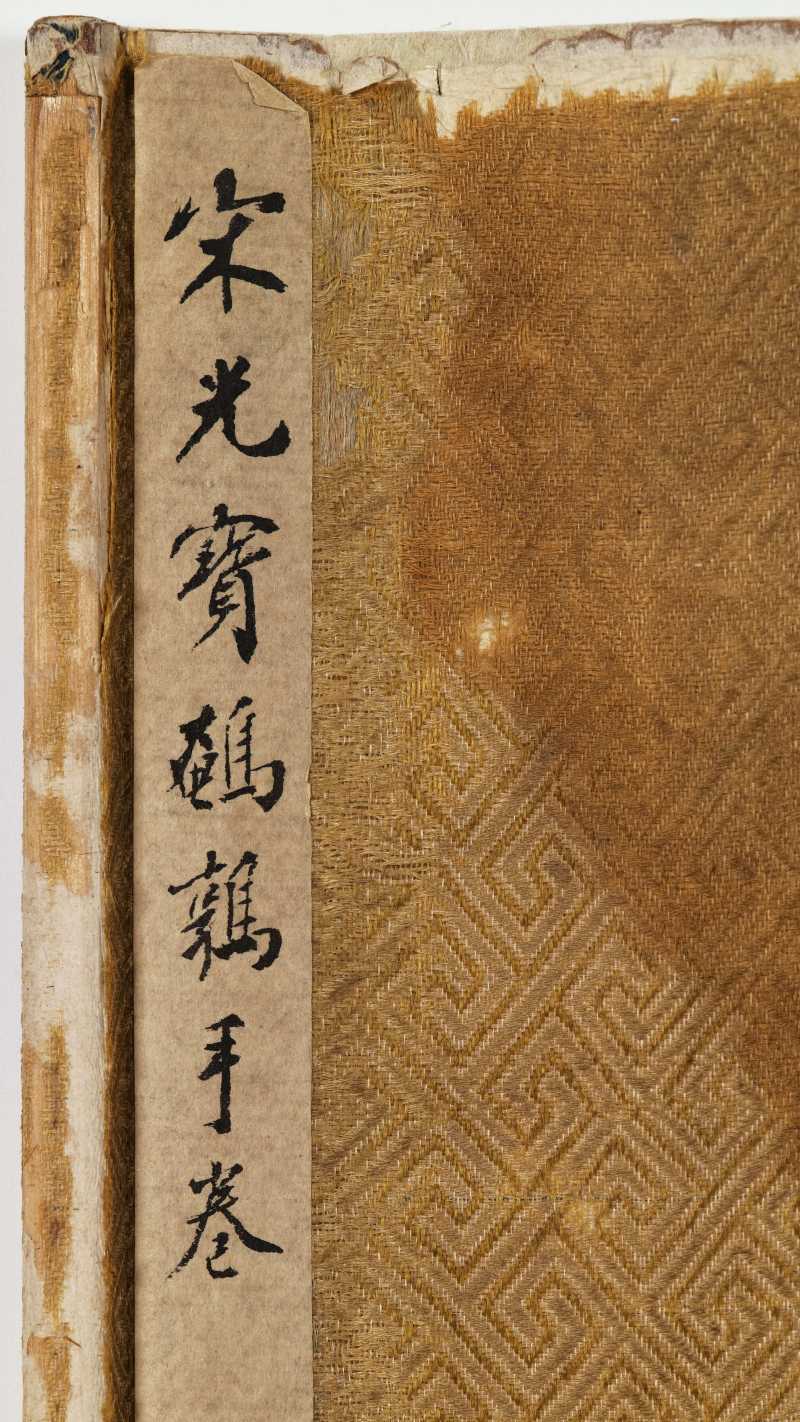 宋光寶鵪鶉手卷